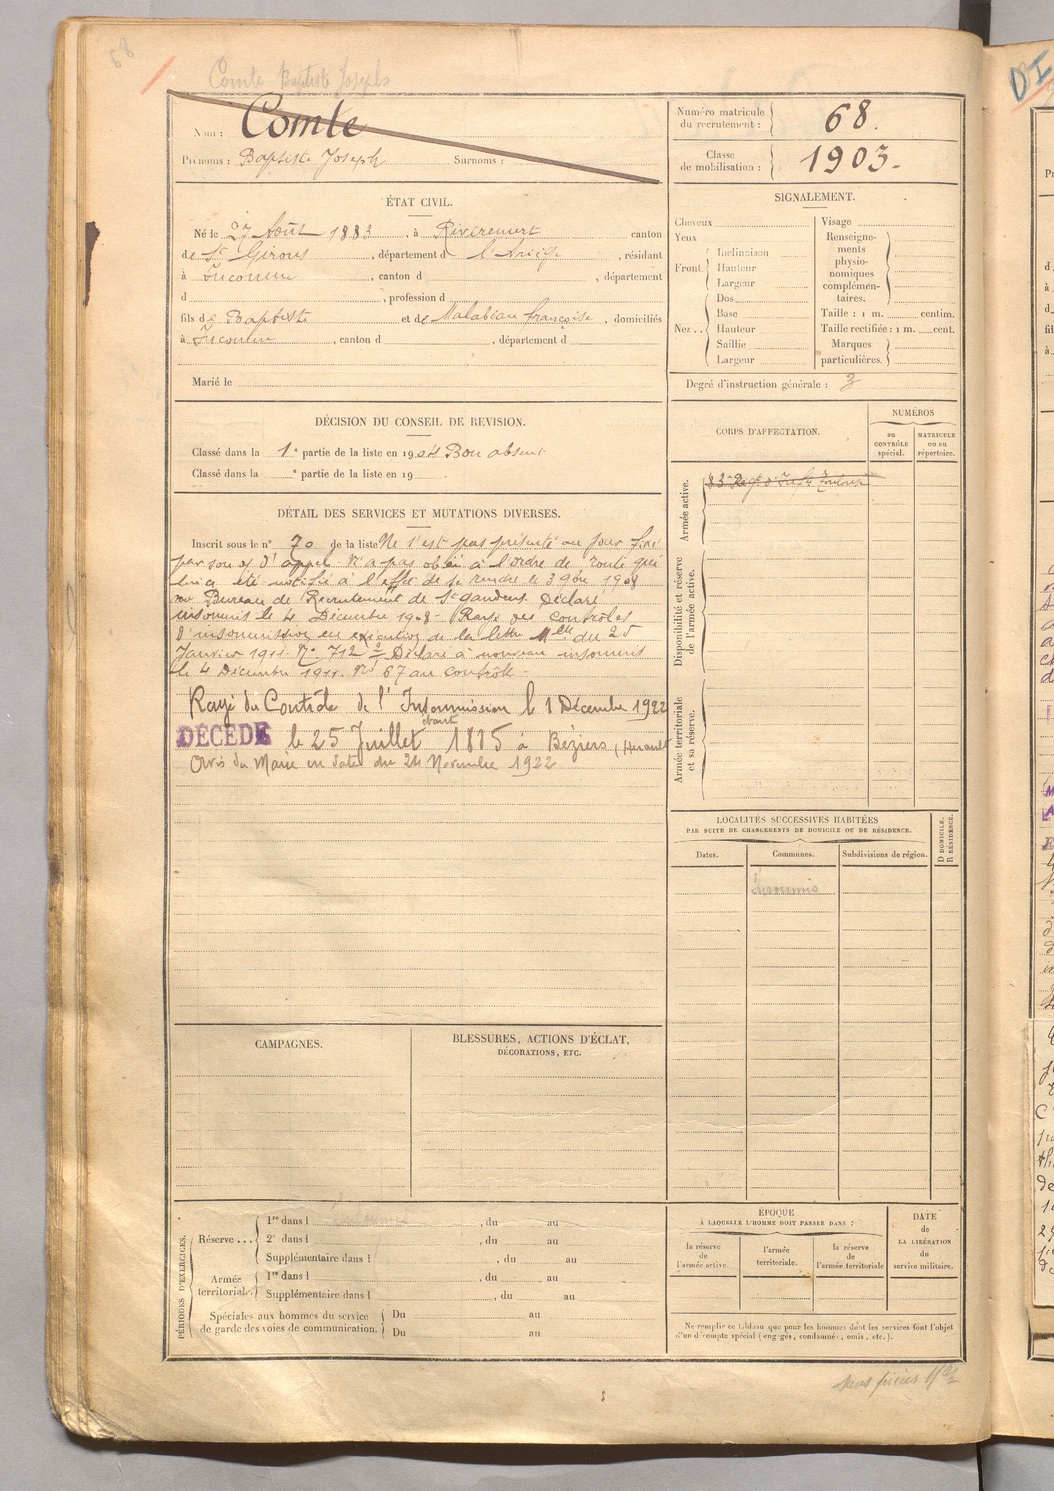 68
Comte Baptiste Joseph
Nom : Comte
Prénoms : Baptiste Joseph Surnoms :
Numéro matricule du recrutement : 68.
Classe de mobilisation : 1903.
ÉTAT CIVIL.
Né le 27 Août 1883, à Rivèrenert canton
de St Girons, département d l'Ariège, résidant
à Inconnu, canton d , département
d , profession d
fils de Baptiste et de Malabian françoise, domiciliés
à Inconnu, canton d , département d
Marié le
SIGNALEMENT.
Cheveux
Yeux
Front
Inclinaison
Hauteur
Largeur
Nez ..
Dos
Base
Hauteur
Saillie
Largeur
Visage
Renseignements physionomiques complémentaires.
Taille : 1 m. centim.
Taille rectifiée : 1 m. cent.
Marques particulières.
Degré d'instruction générale : 3
DÉCISION DU CONSEIL DE REVISION.
Classé dans la 1e partie de la liste en 1904 Bon absent
Classé dans la e partie de la liste en 19
DÉTAIL DES SERVICES ET MUTATIONS DIVERSES.
Inscrit sous le n° 70 de la liste Ne s'est pas présenté au jour fixé
par son d'appel. N'a pas obéi à l'ordre de route qui
lui a été notifié à l'effet de se rendre le 3 9bre 1908
au Bureau de Recrutement de St gaudens. Déclaré
insoumis le 4 Décembre 1908. Rayé des contrôles
d'insoumission en exécution de la lettre Mlle du 25
Janvier 1911. N° 712 Déclaré à nouveau insoumis
le 4 Décembre 1911. N° 67 au contrôle.
Rayé du Contrôle de l'Insoumission le 1 Décembre 1922
étant
DÉCÉDÉ le 25 Juillet 1885 à Béziers (Hérault
Avis du Maire en date du 24 Novembre 1922
CORPS D'AFFECTATION.
NUMÉROS
au CONTRÔLE spécial.
MATRICULE ou au répertoire.
Armée active.
83e Regt d'Infie Toulouse
Disponibilité et réserve de l'armée active.
Armée territoriale et sa réserve.
LOCALITÉS SUCCESSIVES HABITÉES
PAR SUITE DE CHANGEMENTS DE DOMICILE OU DE RÉSIDENCE.
Dates.
Communes.
Subdivisions de région.
D DOMICILE. R RÉSIDENCE.
Insoumis
CAMPAGNES.
BLESSURES, ACTIONS D'ÉCLAT,
DÉCORATIONS, ETC.
PÉRIODES D'EXERCICES.
Réserve ...
1re dans l , du au
2e dans l , du au
Supplémentaire dans l , du au
Armée territoriale.
1re dans l , du au
Supplémentaire dans l , du au
Spéciales aux hommes du service de garde des voies de communication.
Du au
Du au
ÉPOQUE
À LAQUELLE L'HOMME DOIT PASSER DANS :
la réserve de l'armée active.
l'armée territoriale.
la réserve de l'armée territoriale
DATE
de
LA LIBÉRATION
du
service militaire.
Ne remplir ce tableau que pour les hommes dont les services font l'objet
d'un décompte spécial (engagés, condamnés, omis, etc.).
sans pièces